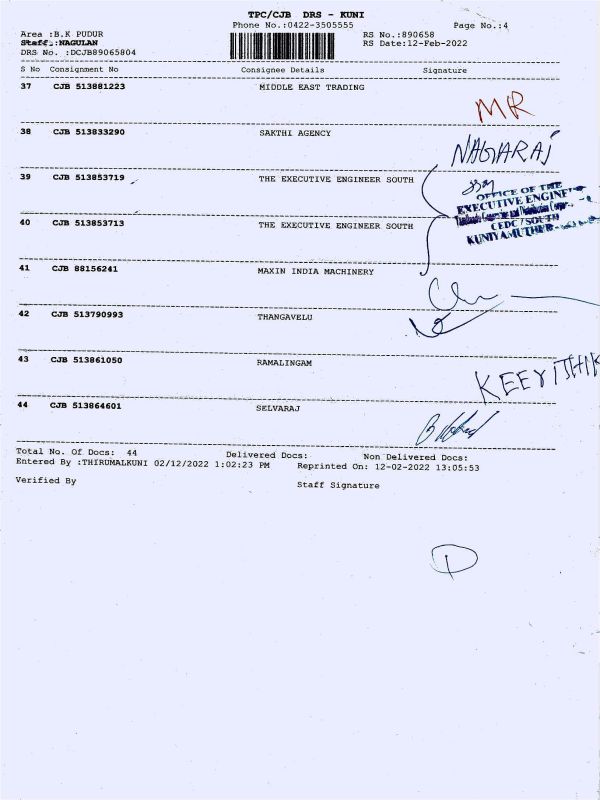 TPC/CJB DRS - KUNI
Phone No.:0422-3505555 Page No.:4
Area :B.K PUDUR RS No.:890658
Staff :NAGULAN RS Date:12-Feb-2022
DRS No. :DCJB89065804
S No Consignment No Consignee Details Signature
37 CJB 513881223 MIDDLE EAST TRADING
MR
38 CJB 513833290 SAKTHI AGENCY
NAGARAJ
39 CJB 513853719 THE EXECUTIVE ENGINEER SOUTH
OFFICE OF THE
EXECUTIVE ENGINEER
CEDC / SOUTH
40 CJB 513853713 THE EXECUTIVE ENGINEER SOUTH
41 CJB 88156241 MAXIN INDIA MACHINERY
42 CJB 513790993 THANGAVELU
43 CJB 513861050 RAMALINGAM
44 CJB 513864601 SELVARAJ
Total No. Of Docs: 44 Delivered Docs: Non Delivered Docs:
Entered By :THIRUMALKUNI 02/12/2022 1:02:23 PM Reprinted On: 12-02-2022 13:05:53
Verified By Staff Signature